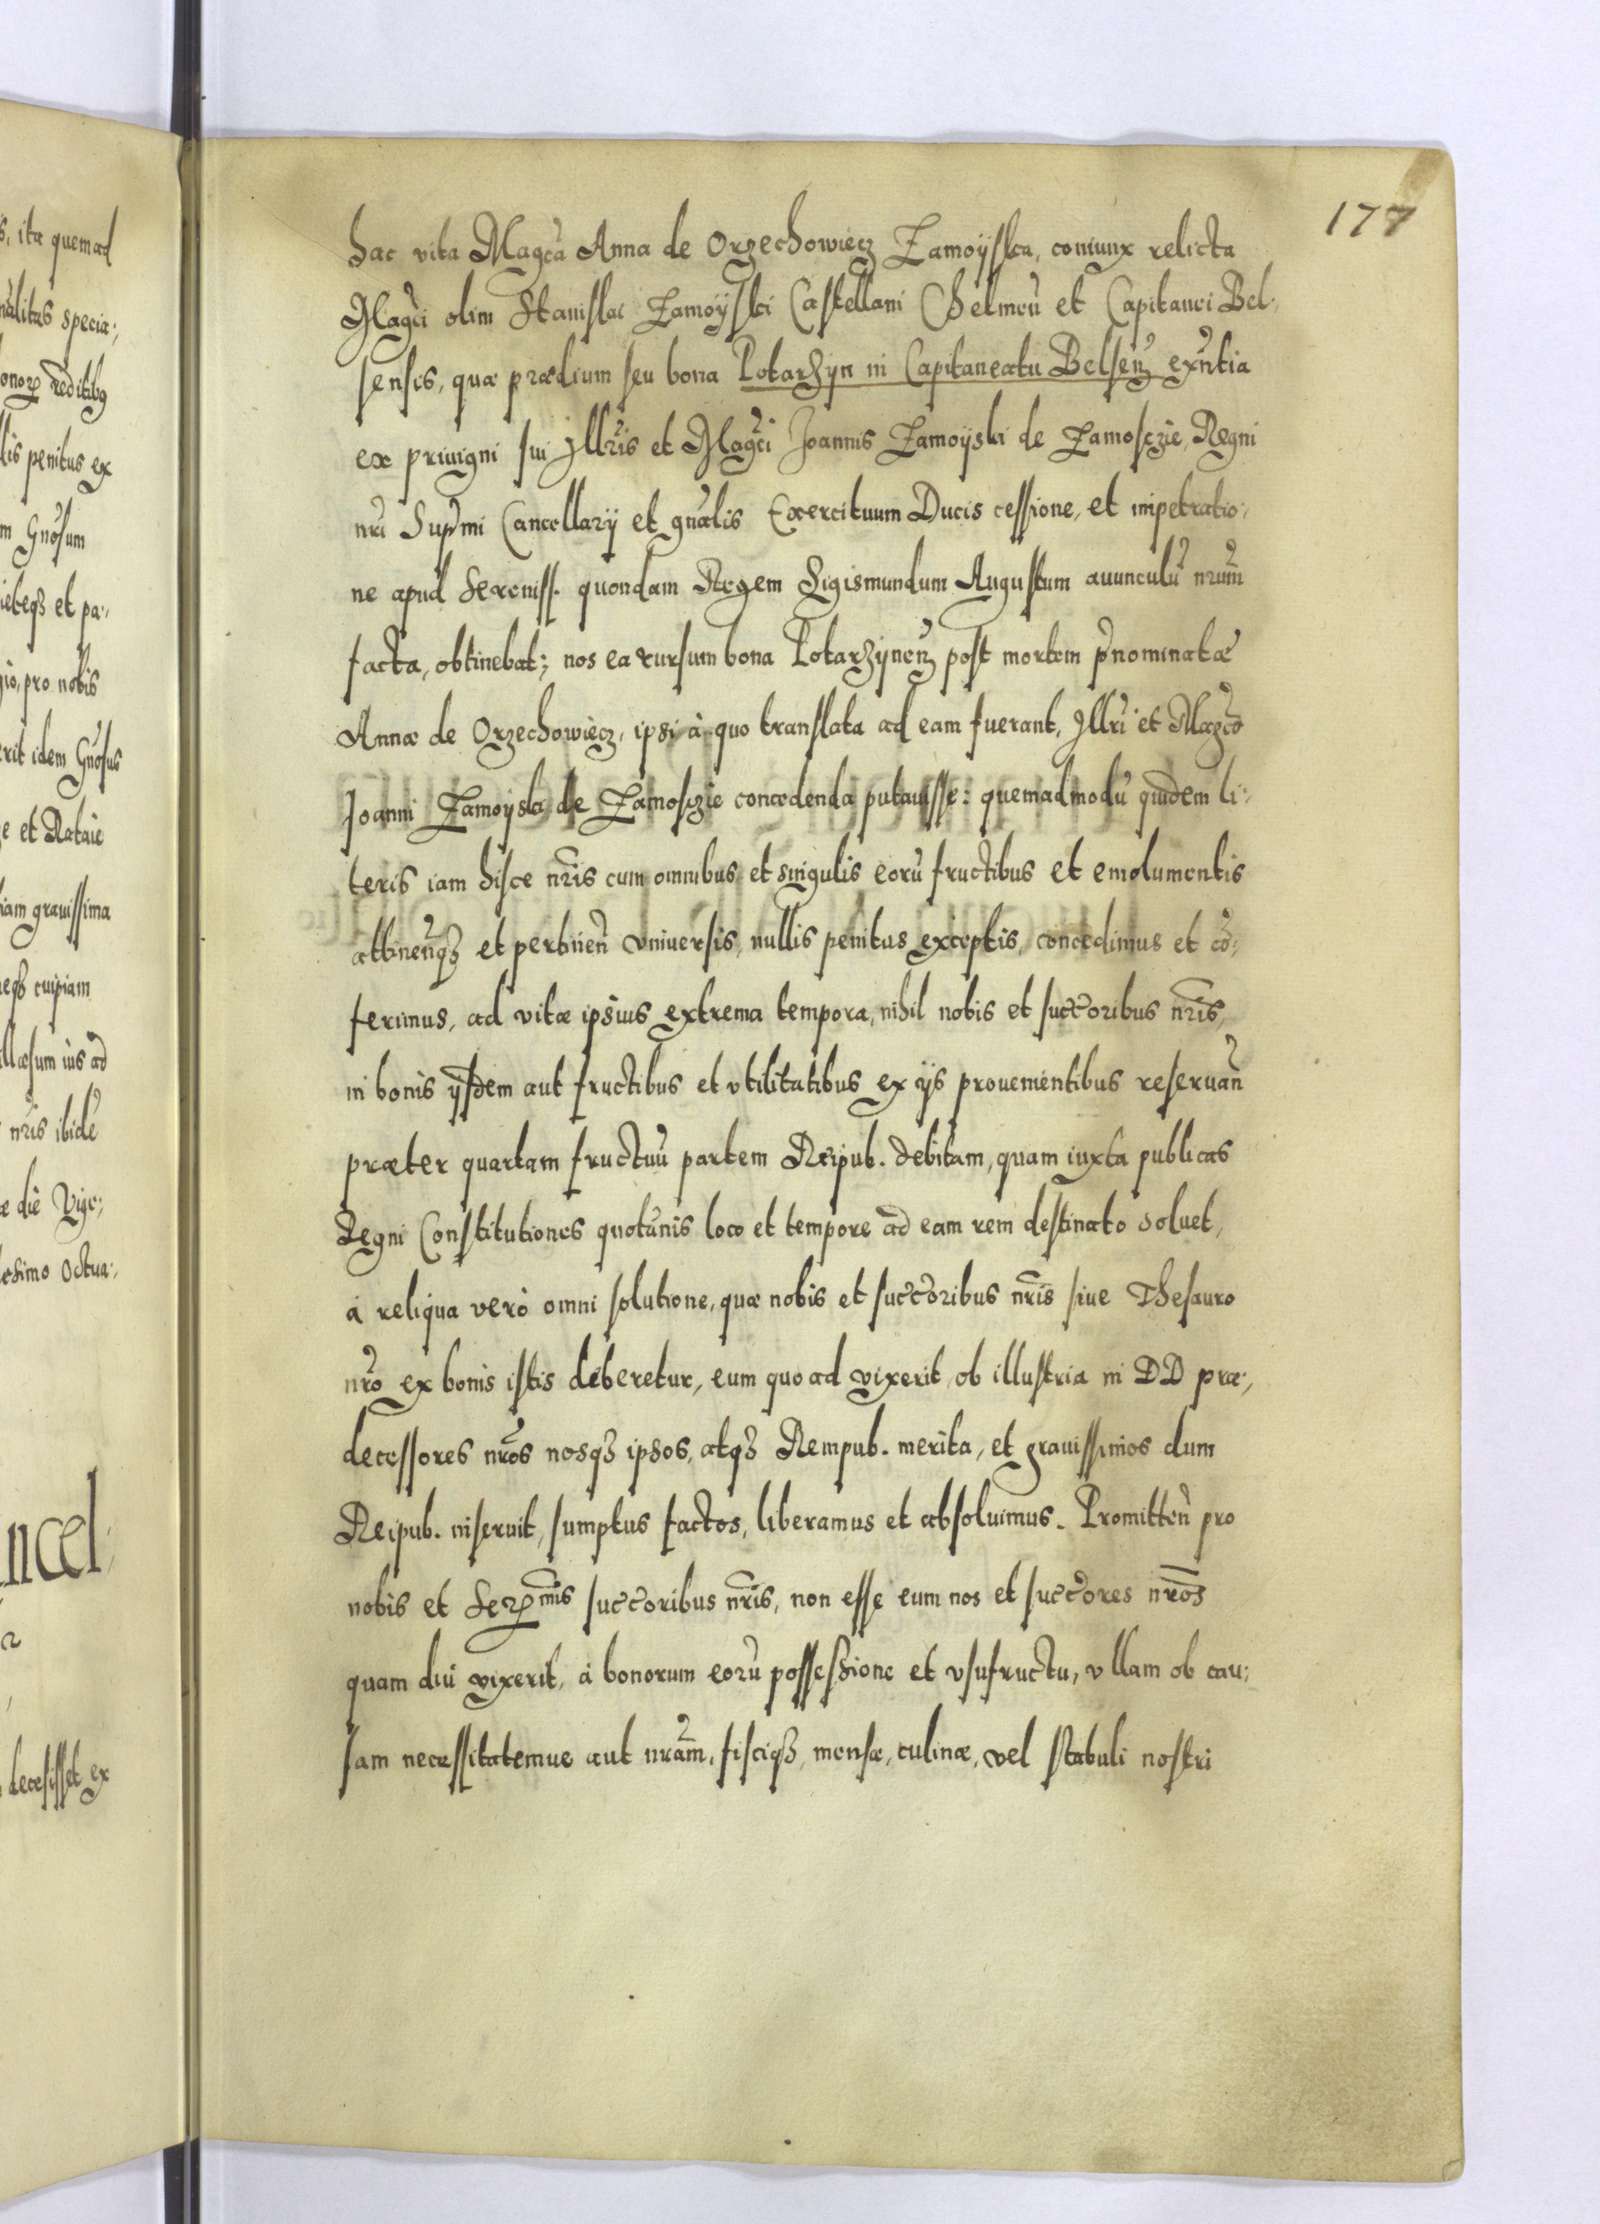 177
hac vita Magca Anna de Orzechowiecz Zamoÿska, coniunx relicta
Magci olim Stanislai Zamoÿski Castellani Chelmeñ et Capitanei Bel-
sensis, quæ prædium seu bona Potarzyn in Capitaneatu Belseñ exñtia
ex priuigni sui Illris et Magci Joannis Zamoÿski de Zamosczie, Regni
nri Supmi Cancellarij et gnalis Exercituum Ducis cessione, et impetratio-
ne apud Sereniss. quondam Regem Sigismundum Augustum auunculũ nrum
facta, obtinebat; nos ea rursum bona Potarzyneñ post mortem pnominatæ
Annæ de Orzechowiecz, ipsi à quo translata ad eam fuerant, Illri et Magco
Joanni Zamoÿski de Zamosczie concedenda putauisse: quemadmodũ quidem li-
teris iam hisce nris cum omnibus et singulis eorũ fructibus et emolumentis
attineñqȝ et pertineñ vniuersis, nullis penitus exceptis, concedimus et cõ-
ferimus, ad vitæ ipsius extrema tempora, nihil nobis et succoribus nris,
in bonis ijsdem aut fructibus et vtilitatibus ex ijs prouenientibus reseruañ
præter quartam fructuũ partem Reipub. debitam, quam iuxta publicas
Regni Constitutiones quotanis loco et tempore ad eam rem destinato soluet,
à reliqua verò omni solutione, quæ nobis et succoribus nris siue Thesauro
nro ex bonis istis deberetur, eum quo ad vixerit ob illustria in DD præ-
decessores nros nosqȝ ipsos, atqȝ Rempub. merita, et grauissimos dum
Reipub. inseruit, sumptus factos, liberamus et absoluimus. Promitteñ pro
nobis et Ser^mis succoribus nris, non esse eum nos et succores nros
quam diu vixerit, à bonorum eorũ possessione et vsufructu, vllam ob cau-
sam necessitatemue aut nram, fisciqȝ, mensæ, culinæ, vel stabuli nostri